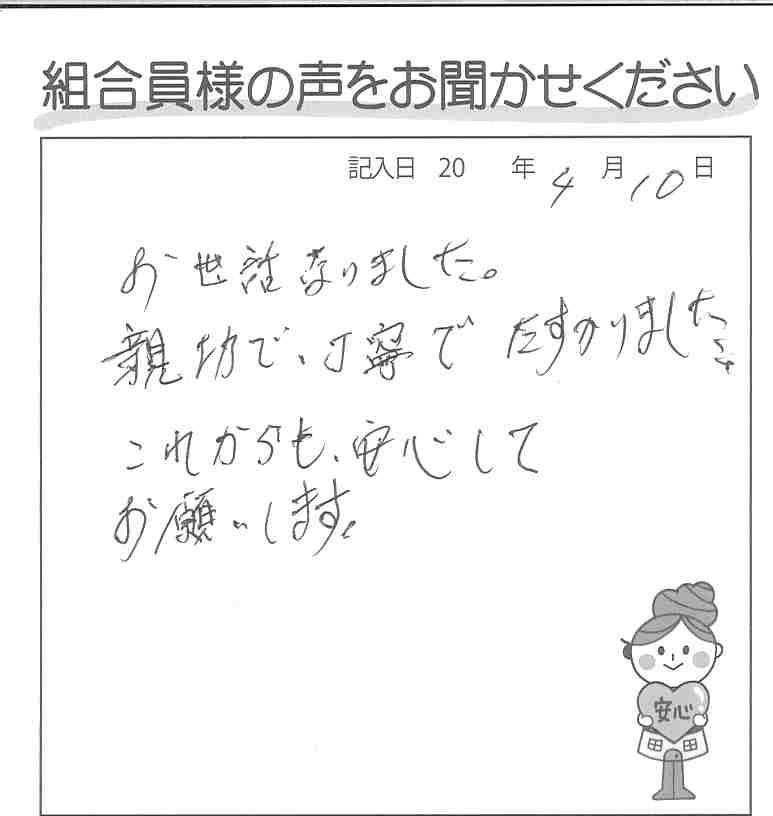 組合員様の声をお聞かせください
記入日 20 年 4 月 10 日
お世話なりました。
親切で、丁寧で たすかりました。
これからも、安心して
お願いします。
安心